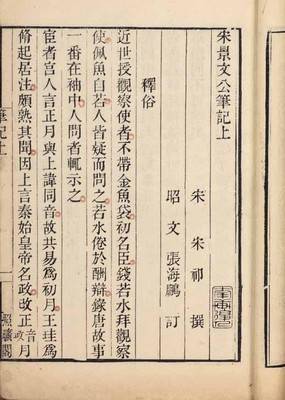 宋景文公筆記上
宋 宋祁 撰
昭文 張海鵬 訂
釋俗
近世授觀察使者不帶金魚袋初名臣錢若水拜觀察
使佩魚自若人皆疑而問之若水倦於酬辯錄唐故事
一番在袖中人問者輒示之
宦者宮人言正月與上諱同音故共易爲初月王珪爲
脩起居注頗熟其聞因上言秦始皇帝名政改正音政月
筆記上
照曠閣